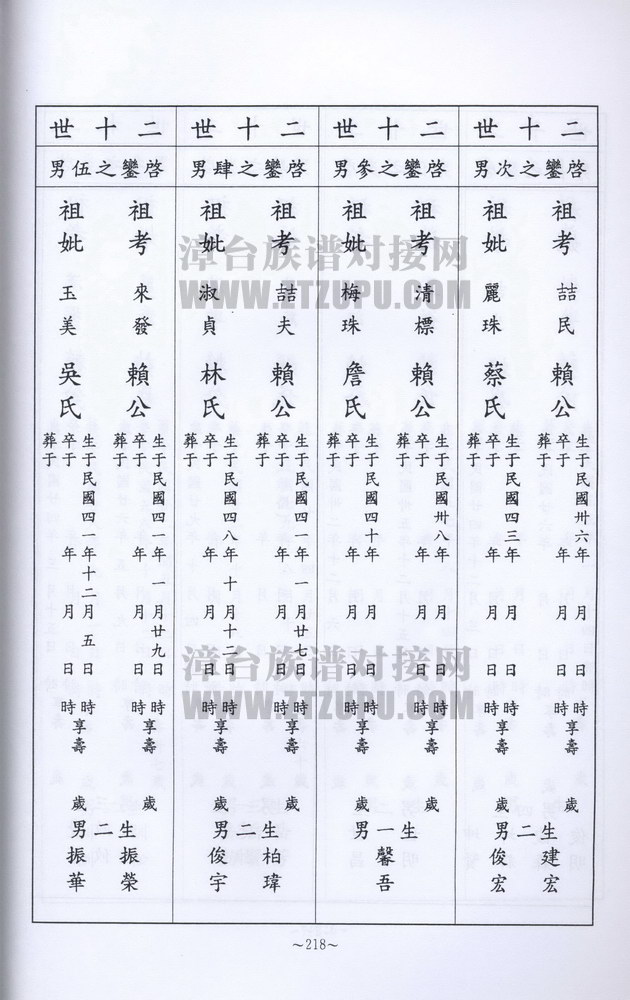 二十世
啓鑾之次男
祖考 喆民 賴公
生于民國卅六年 月 日 時享壽 歲
卒于 年 月 日
葬于
祖妣 麗珠 蔡氏
生于民國四三年 月 日 時享壽 歲
卒于 年 月 日
葬于
生二男
建宏
俊宏
二十世
啓鑾之參男
祖考 清標 賴公
生于民國卅八年 月 日 時享壽 歲
卒于 年 月 日
葬于
祖妣 梅珠 詹氏
生于民國四十年 月 日 時享壽 歲
卒于 年 月 日
葬于
生一男
馨吾
二十世
啓鑾之肆男
祖考 喆夫 賴公
生于民國四一年一月廿七日 時享壽 歲
卒于 年 月 日
葬于
祖妣 淑貞 林氏
生于民國四八年十月十二日 時享壽 歲
卒于 年 月 日
葬于
生二男
柏瑋
俊宇
二十世
啓鑾之伍男
祖考 來發 賴公
生于民國四一年一月廿九日 時享壽 歲
卒于 年 月 日
葬于
祖妣 玉美 吳氏
生于民國四一年十二月五日 時享壽 歲
卒于 年 月 日
葬于
生二男
振榮
振華
漳台族谱对接网
WWW.ZTZUPU.COM
漳台族谱对接网
WWW.ZTZUPU.COM
~218~